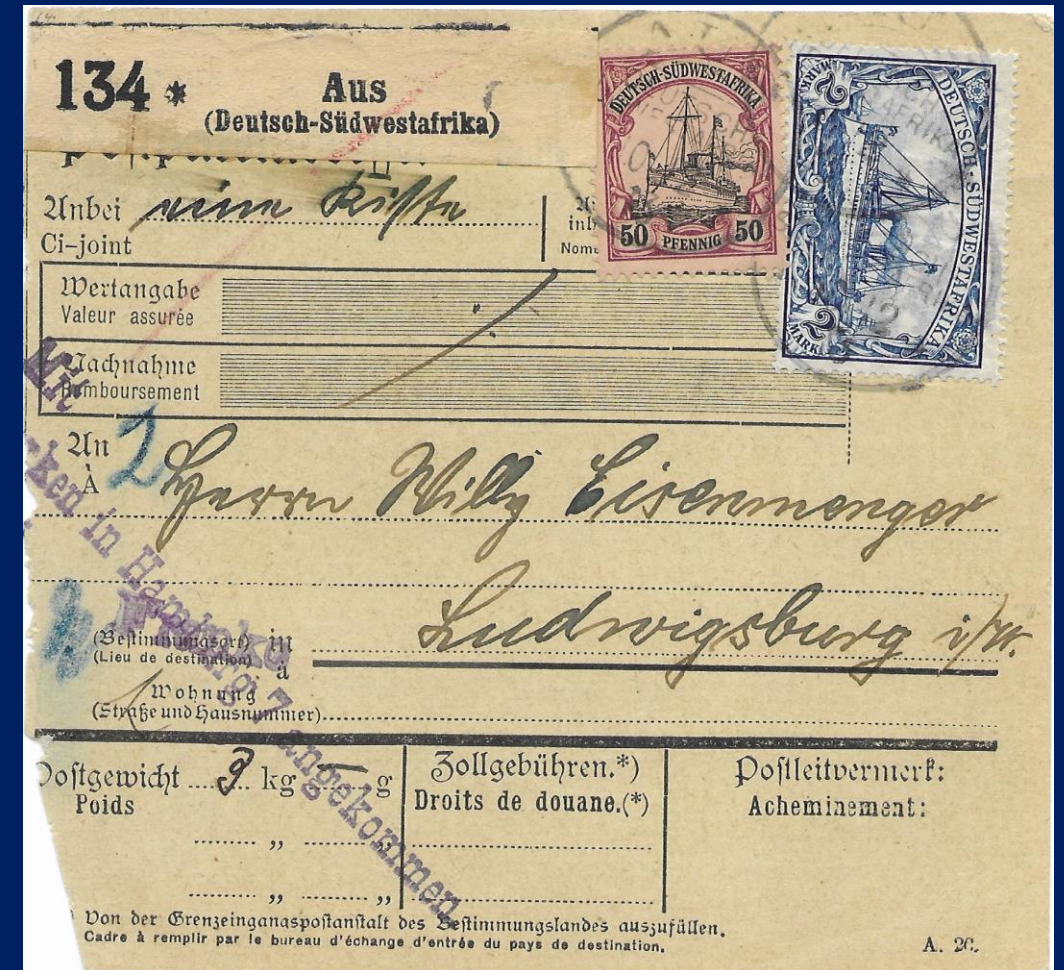 134 * Aus
(Deutsch-Südwestafrika)
DEUTSCH-SÜDWESTAFRIKA
50 PFENNIG 50
2 MARK
DEUTSCH-SÜDWESTAFRIKA
2 MARK
Anbei eine Kiste
Ci-joint
Wertangabe
Valeur assurée
Nachnahme
Remboursement
An 2
À
Herrn Willy Eisenmenger
(Bestimmungsort) in Ludwigsburg i/W.
(Lieu de destination) à
Wohnung
(Straße und Hausnummer)
Mit
in Hamburg 7 angekommen
Postgewicht 9 kg g
Poids
„ „
„ „
Zollgebühren.*)
Droits de douane.(*)
Postleitvermerk:
Acheminement:
Von der Grenzeingangspostanstalt des Bestimmungslandes auszufüllen.
Cadre à remplir par le bureau d'échange d'entrée du pays de destination.